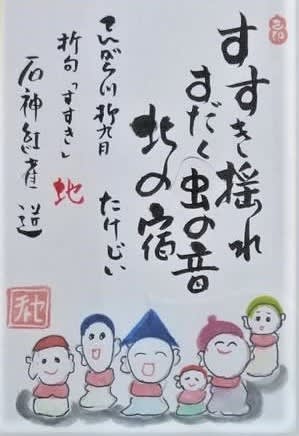 すすき揺れ
すだく虫の音
北の宿
たけじい
てんがら川柳九月
折句「すすき」地
石神紅雀 選